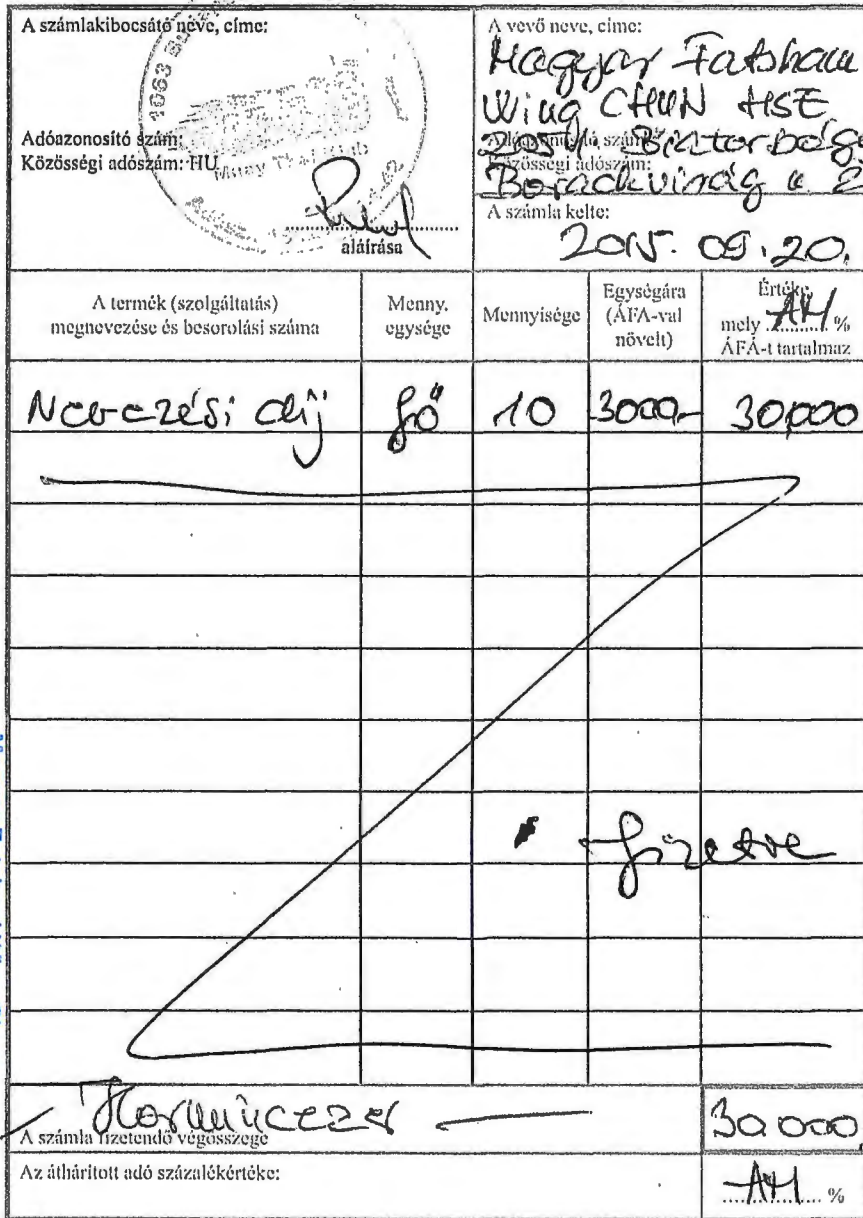 A számlakibocsátó neve, címe:
1063
Adóazonosító szám:
Közösségi adószám: HU
Muay Thai Club
aláírása
A vevő neve, címe:
Magyar Fatshan
Wing CHUN HSE
Közösségi adószám:
A számla kelte:
2015. 09. 20.
A termék (szolgáltatás) megnevezése és besorolási száma
Menny. egysége
Mennyisége
Egységára (ÁFA-val növelt)
Értéke, mely AM %
ÁFÁ-t tartalmaz
Nevezési díj fő 10 3000,- 30,000
fizetve
Harmincezer
A számla fizetendő végösszege 30.000
Az áthárított adó százalékértéke: AM %